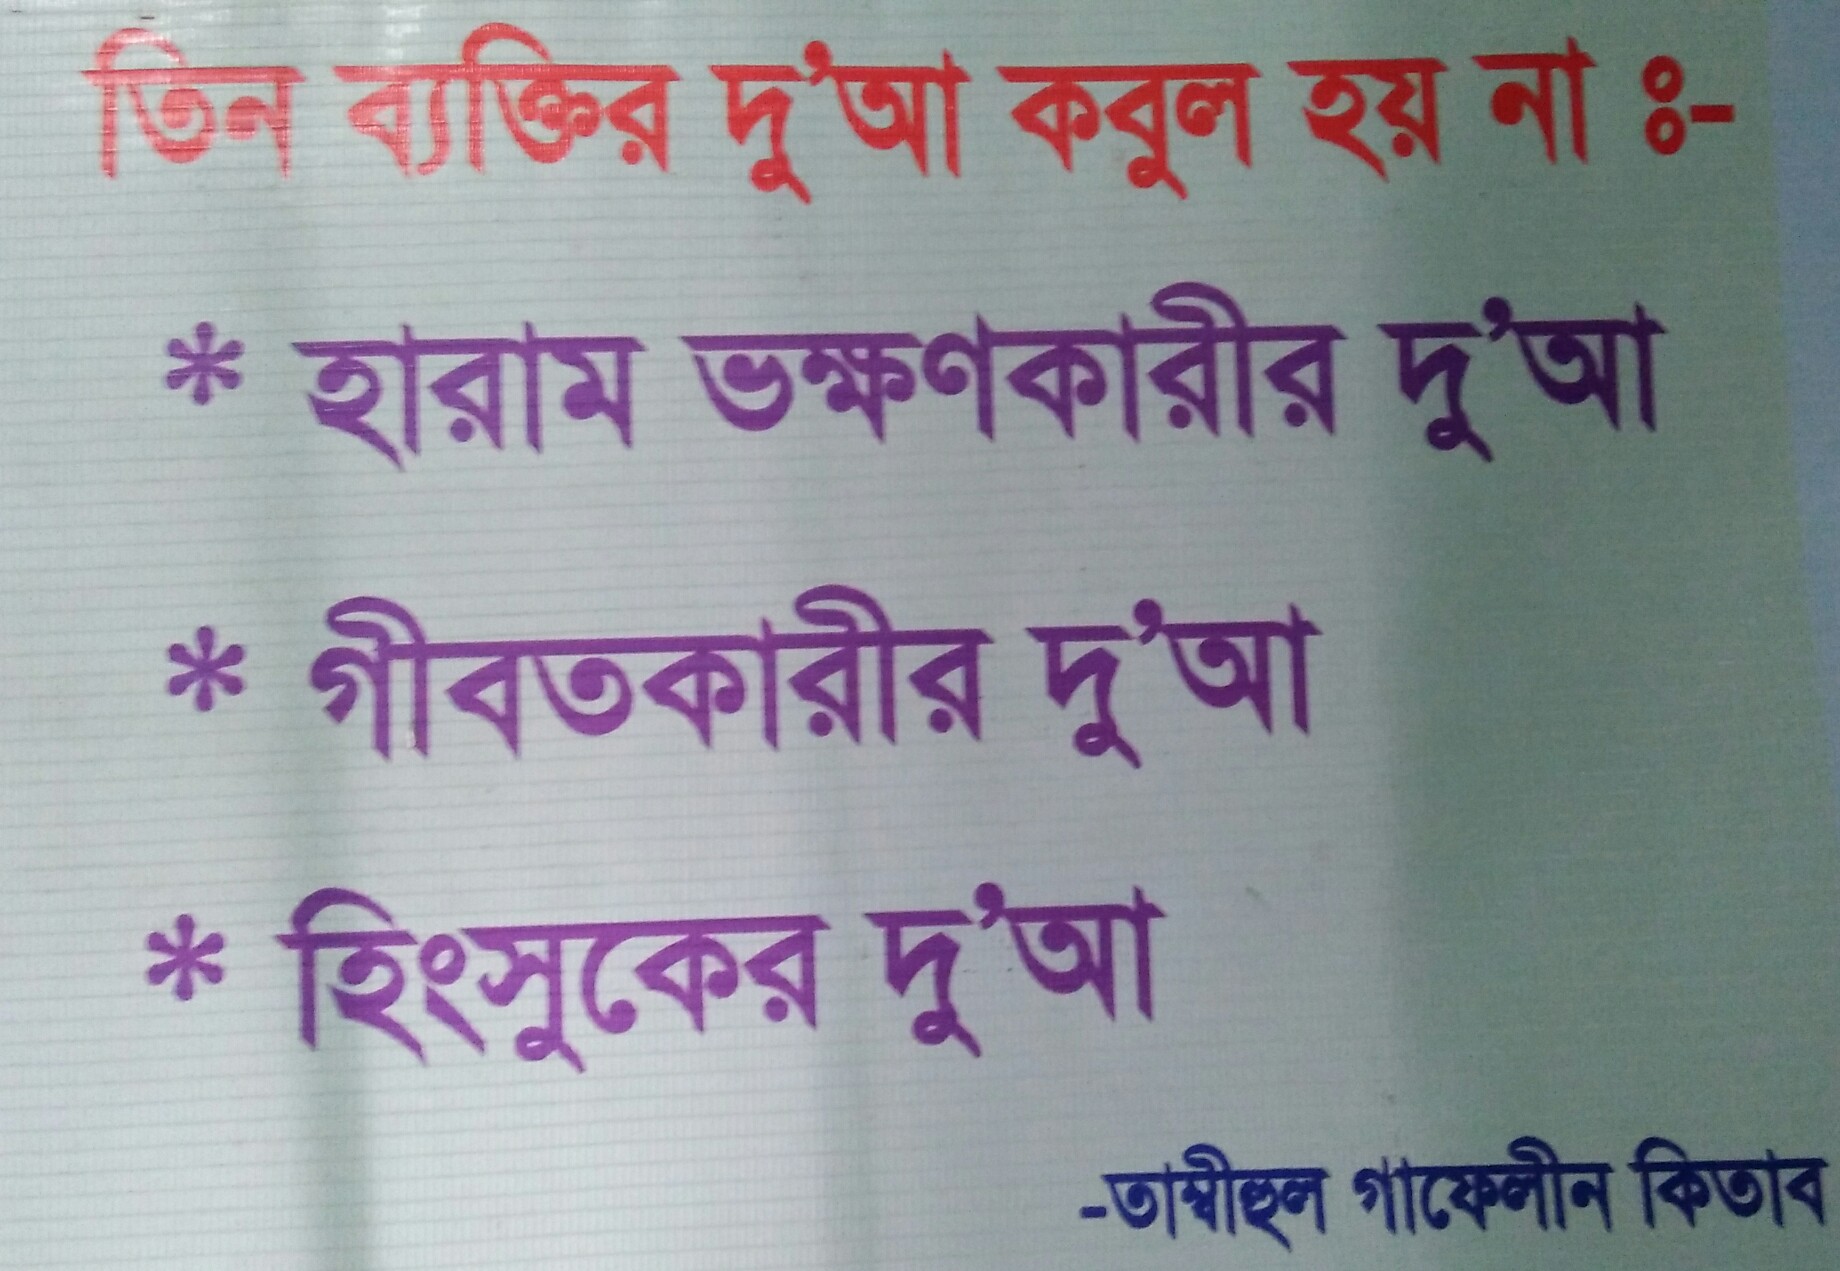 তিন ব্যক্তির দু'আ কবুল হয় না ঃ-
* হারাম ভক্ষণকারীর দু'আ
* গীবতকারীর দু'আ
* হিংসুকের দু'আ
-তাম্বীহুল গাফেলীন কিতাব